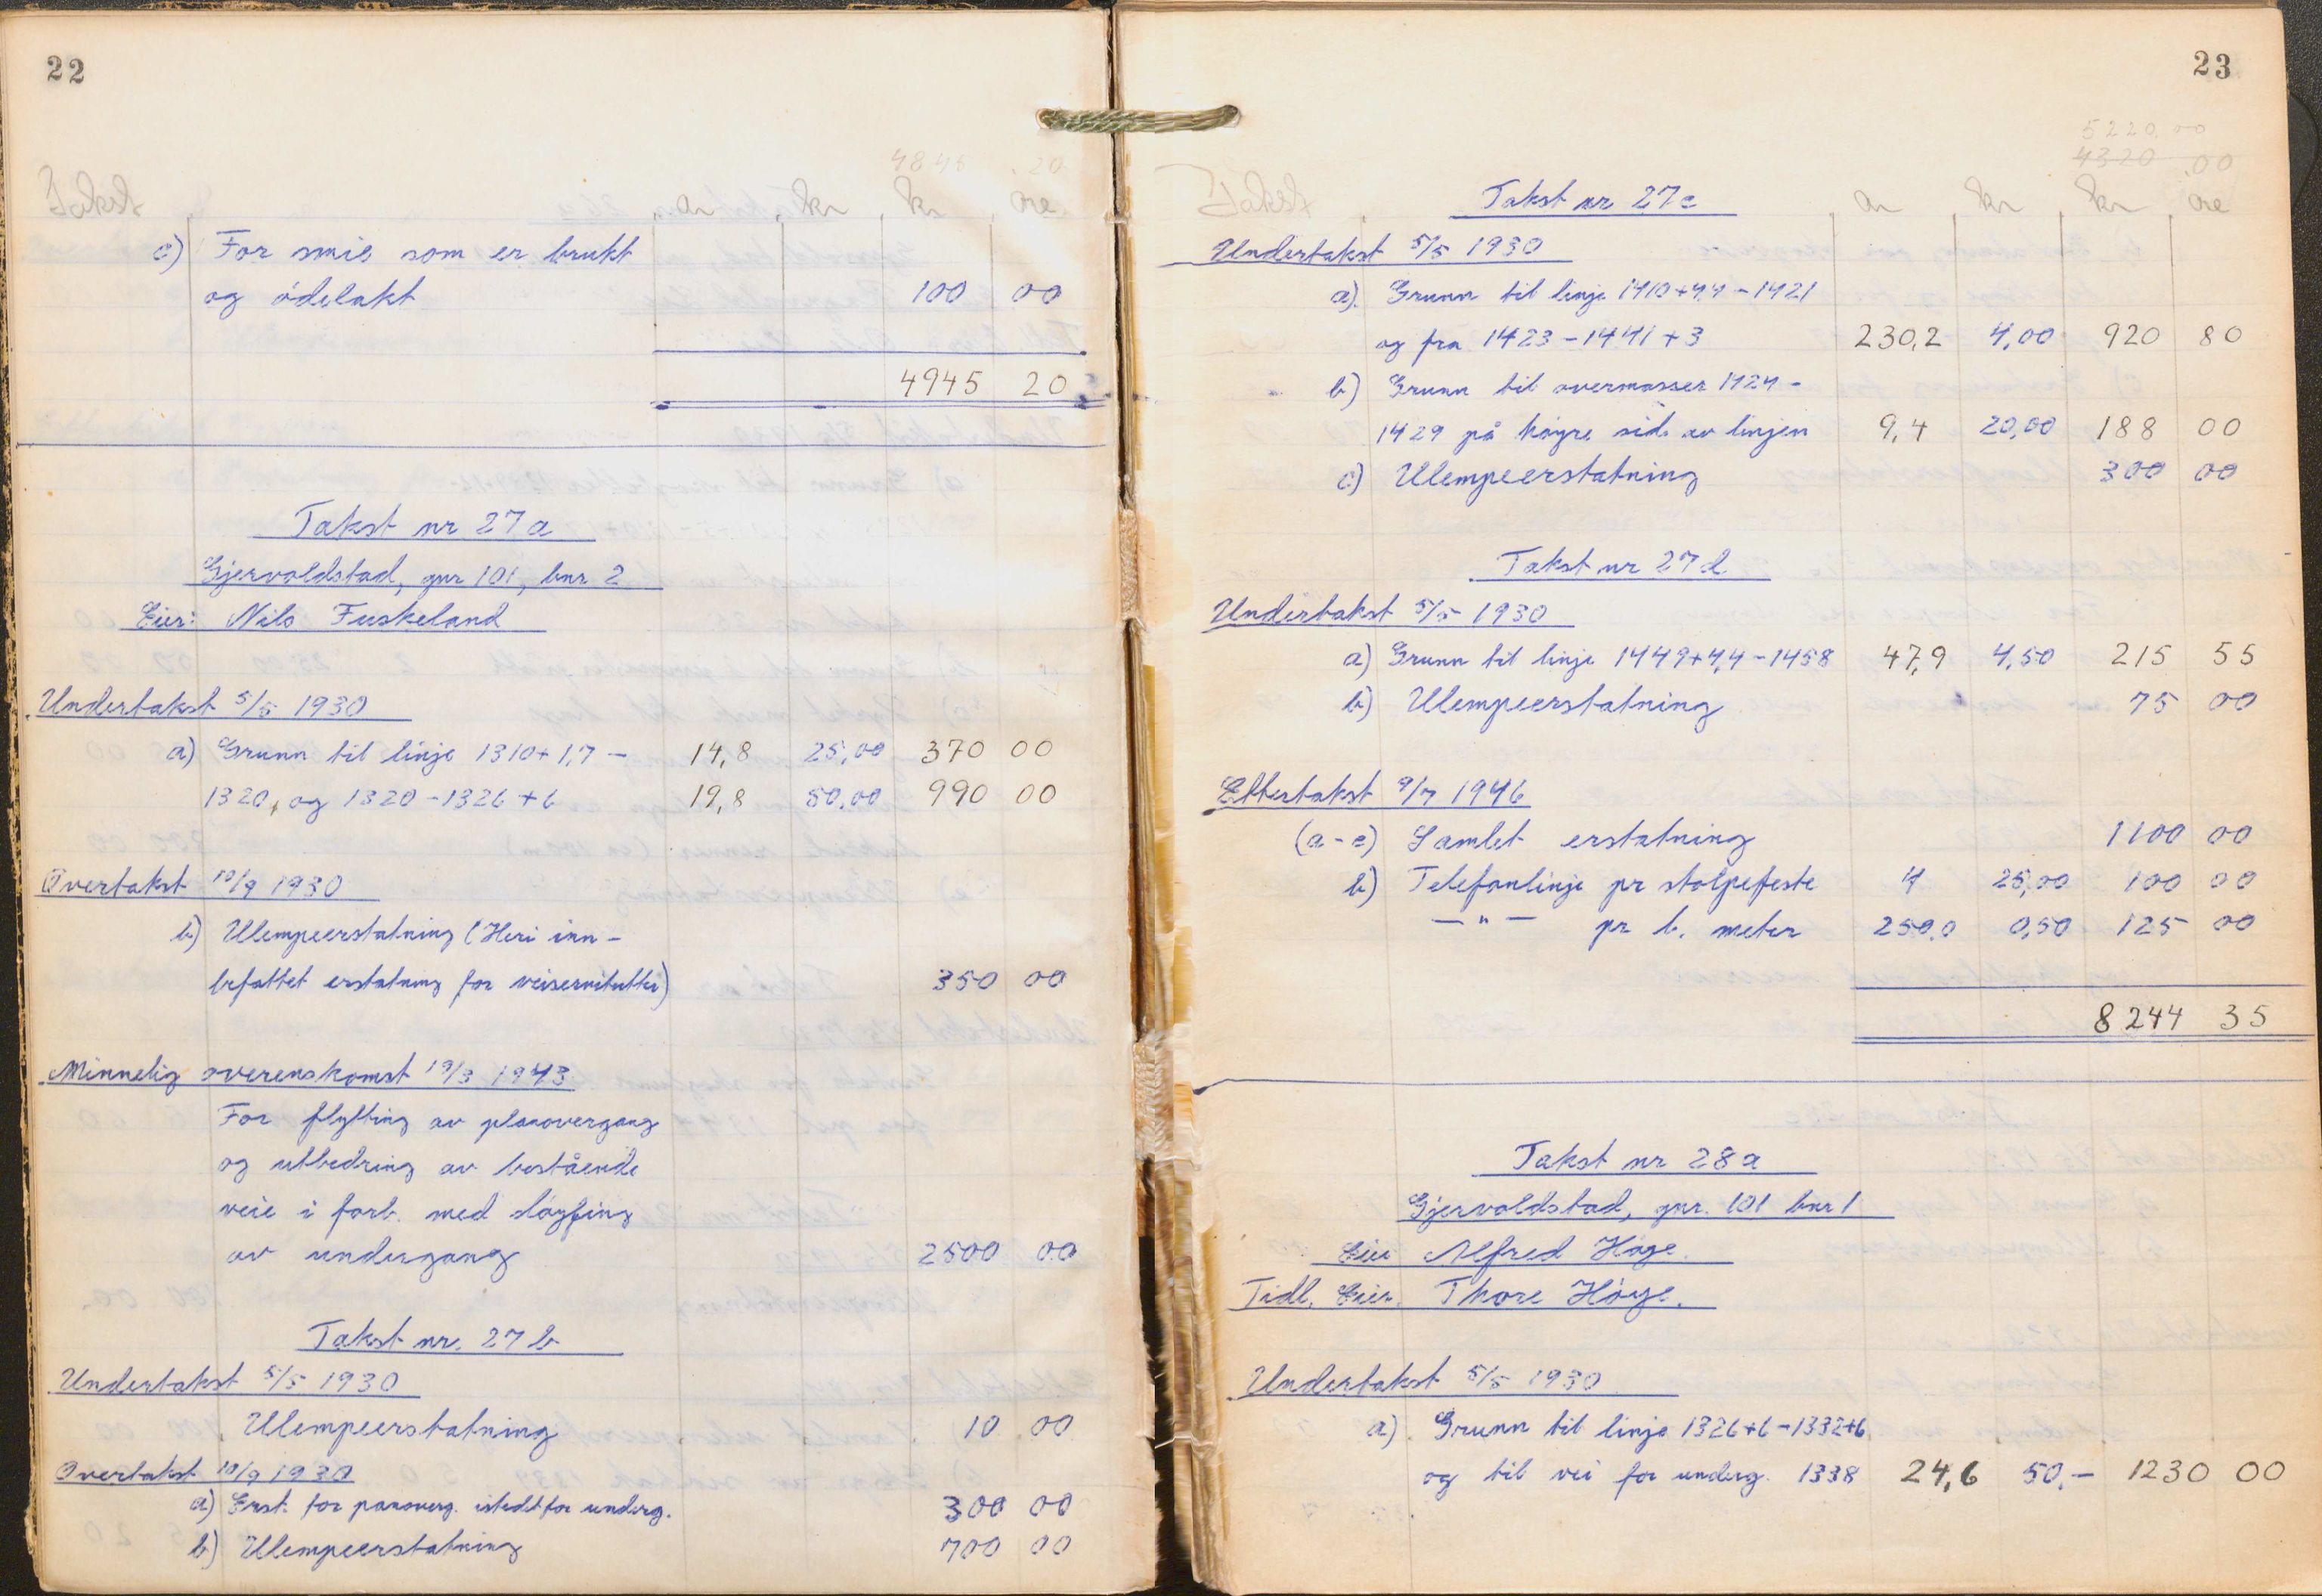 22
4845 .20
Takst ar kr kr øre
c) For smie som er brukt
og ödelakt 100 00
4945 20
Takst nr 27 a
Gjervoldstad, gnr 101, bnr 2
Eier: Nils Fuskeland
Undertakst 5/5 1930
a) Grunn til linje 1310+1,7 - 14,8 25,00 370 00
1320, og 1320-1326+6 19,8 50,00 990 00
Overtakst 10/9 1930
b) Ulempeerstatning (Heri inn-
befattet erstatning for veiservitutter) 350 00
Minnelig overenskomst 19/3 1943
For flytting av planovergang
og utbedring av bestående
veie i forb. med sløyfing
av undergang 2500 00
Takst nr. 27 b
Undertakst 5/5 1930
Ulempeerstatning 10 00
Overtakst 10/9 1930
a) Erst. for panoverg. istedet for underg. 300 00
b) Ulempeerstatning 700 00
23
5220,00
4320 .00
Takst Takst nr 27c ar kr kr øre
Undertakst 5/5 1930
a). Grunn til linje 1410+4,4-1421
og fra 1423-1441+3 230,2 4,00 920 80
b) Grunn til overmasser 1424-
1429 på høyre side av linjen 9,4 20,00 188 00
c) Ulempeerstatning 300 00
Takst nr 27d
Undertakst 5/5 1930
a) Grunn til linje 1449+4,4-1458 47,9 4,50 215 55
b) Ulempeerstatning 75 00
Ettertakst 9/7 1946
(a-e) Samlet erstatning 1100 00
b) Telefonlinje pr stolpefeste 4 25,00 100 00
— " — pr l. meter 250,0 0,50 125 00
8244 35
Takst nr 28a
Gjervoldstad, gnr. 101 bnr 1
Eier Alfred Høge.
Tidl. Eier. Thore Höye.
Undertakst 5/5 1930
a). Grunn til linje 1326+6-1332+6
og til vei for underg. 1338 24,6 50.- 1230 00